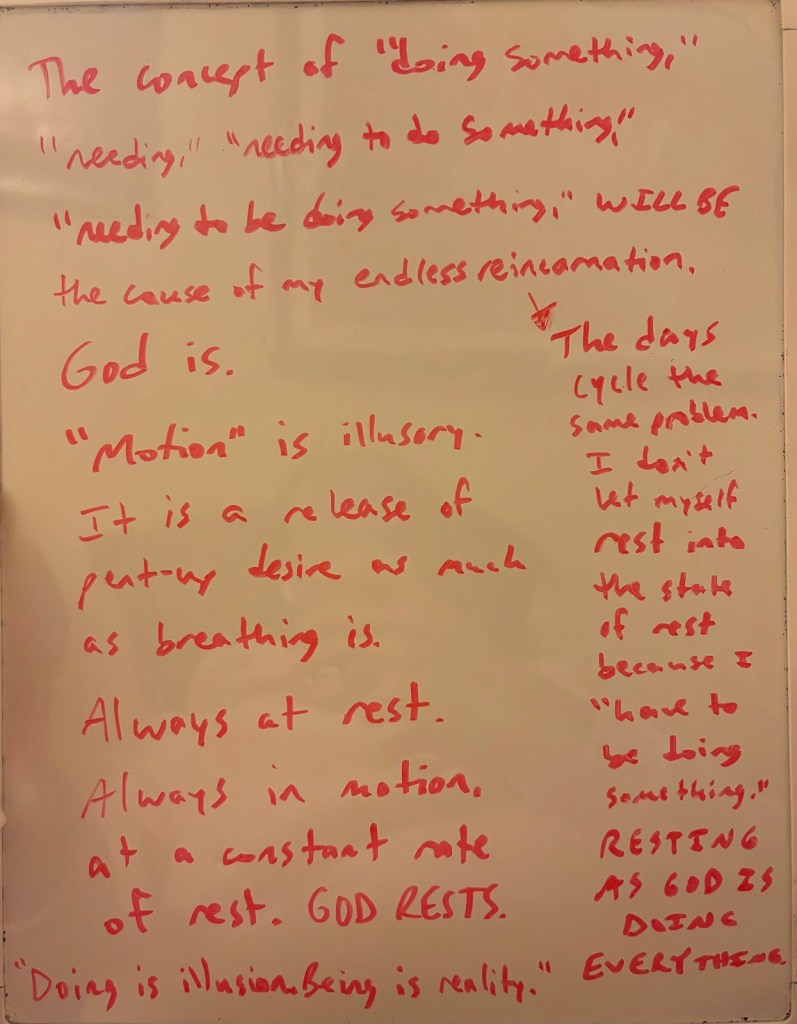 The concept of "doing something,"
"needing," "needing to do something,"
"needing to be doing something," WILL BE
the cause of my endless reincarnation.
God is.
"Motion" is illusory.
It is a release of
pent-up desire as much
as breathing is.
Always at rest.
Always in motion.
at a constant rate
of rest. GOD RESTS.
"Doing is illusion. Being is reality."
The days
cycle the
same problem.
I don't
let myself
rest into
the state
of rest
because I
"have to
be doing
something."
RESTING
AS GOD IS
DOING
EVERYTHING.